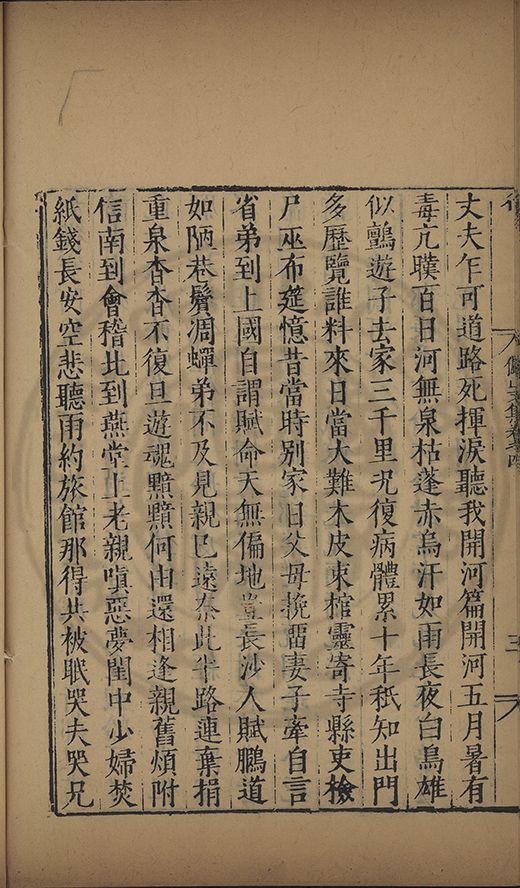 丈夫乍可道路死揮淚聽我開河篇開河五月暑有
毒亢暵百日河無泉枯蓬赤烏汗如雨長夜白鳥雄
似鸇遊子去家三千里況復病體累十年秖知出門
多歷覽誰料來日當大難木皮束棺靈寄寺縣吏檢
尸巫布筵憶昔當時別家日父母挽畱妻子牽自言
省弟到上國自謂賦命天無偏地豈長沙人賦鵩道
如陋巷鬢凋蟬弟不及見親已遠奈此半路連棄捐
重泉杳杳不復旦遊魂黯黯何由還相逢親舊煩附
信南到會稽北到燕堂上老親嗔惡夢閨中少婦焚
紙錢長安空悲聽雨約旅館那得共被眠哭夫哭兄